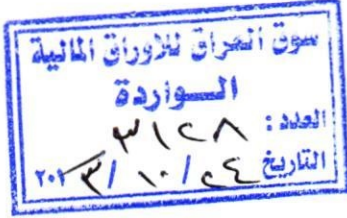 سوق العراق للاوراق المالية
الـــواردة
العدد : ٣١٢٨
التاريخ ٢٤ / ١٠ / ٢٠٢٣